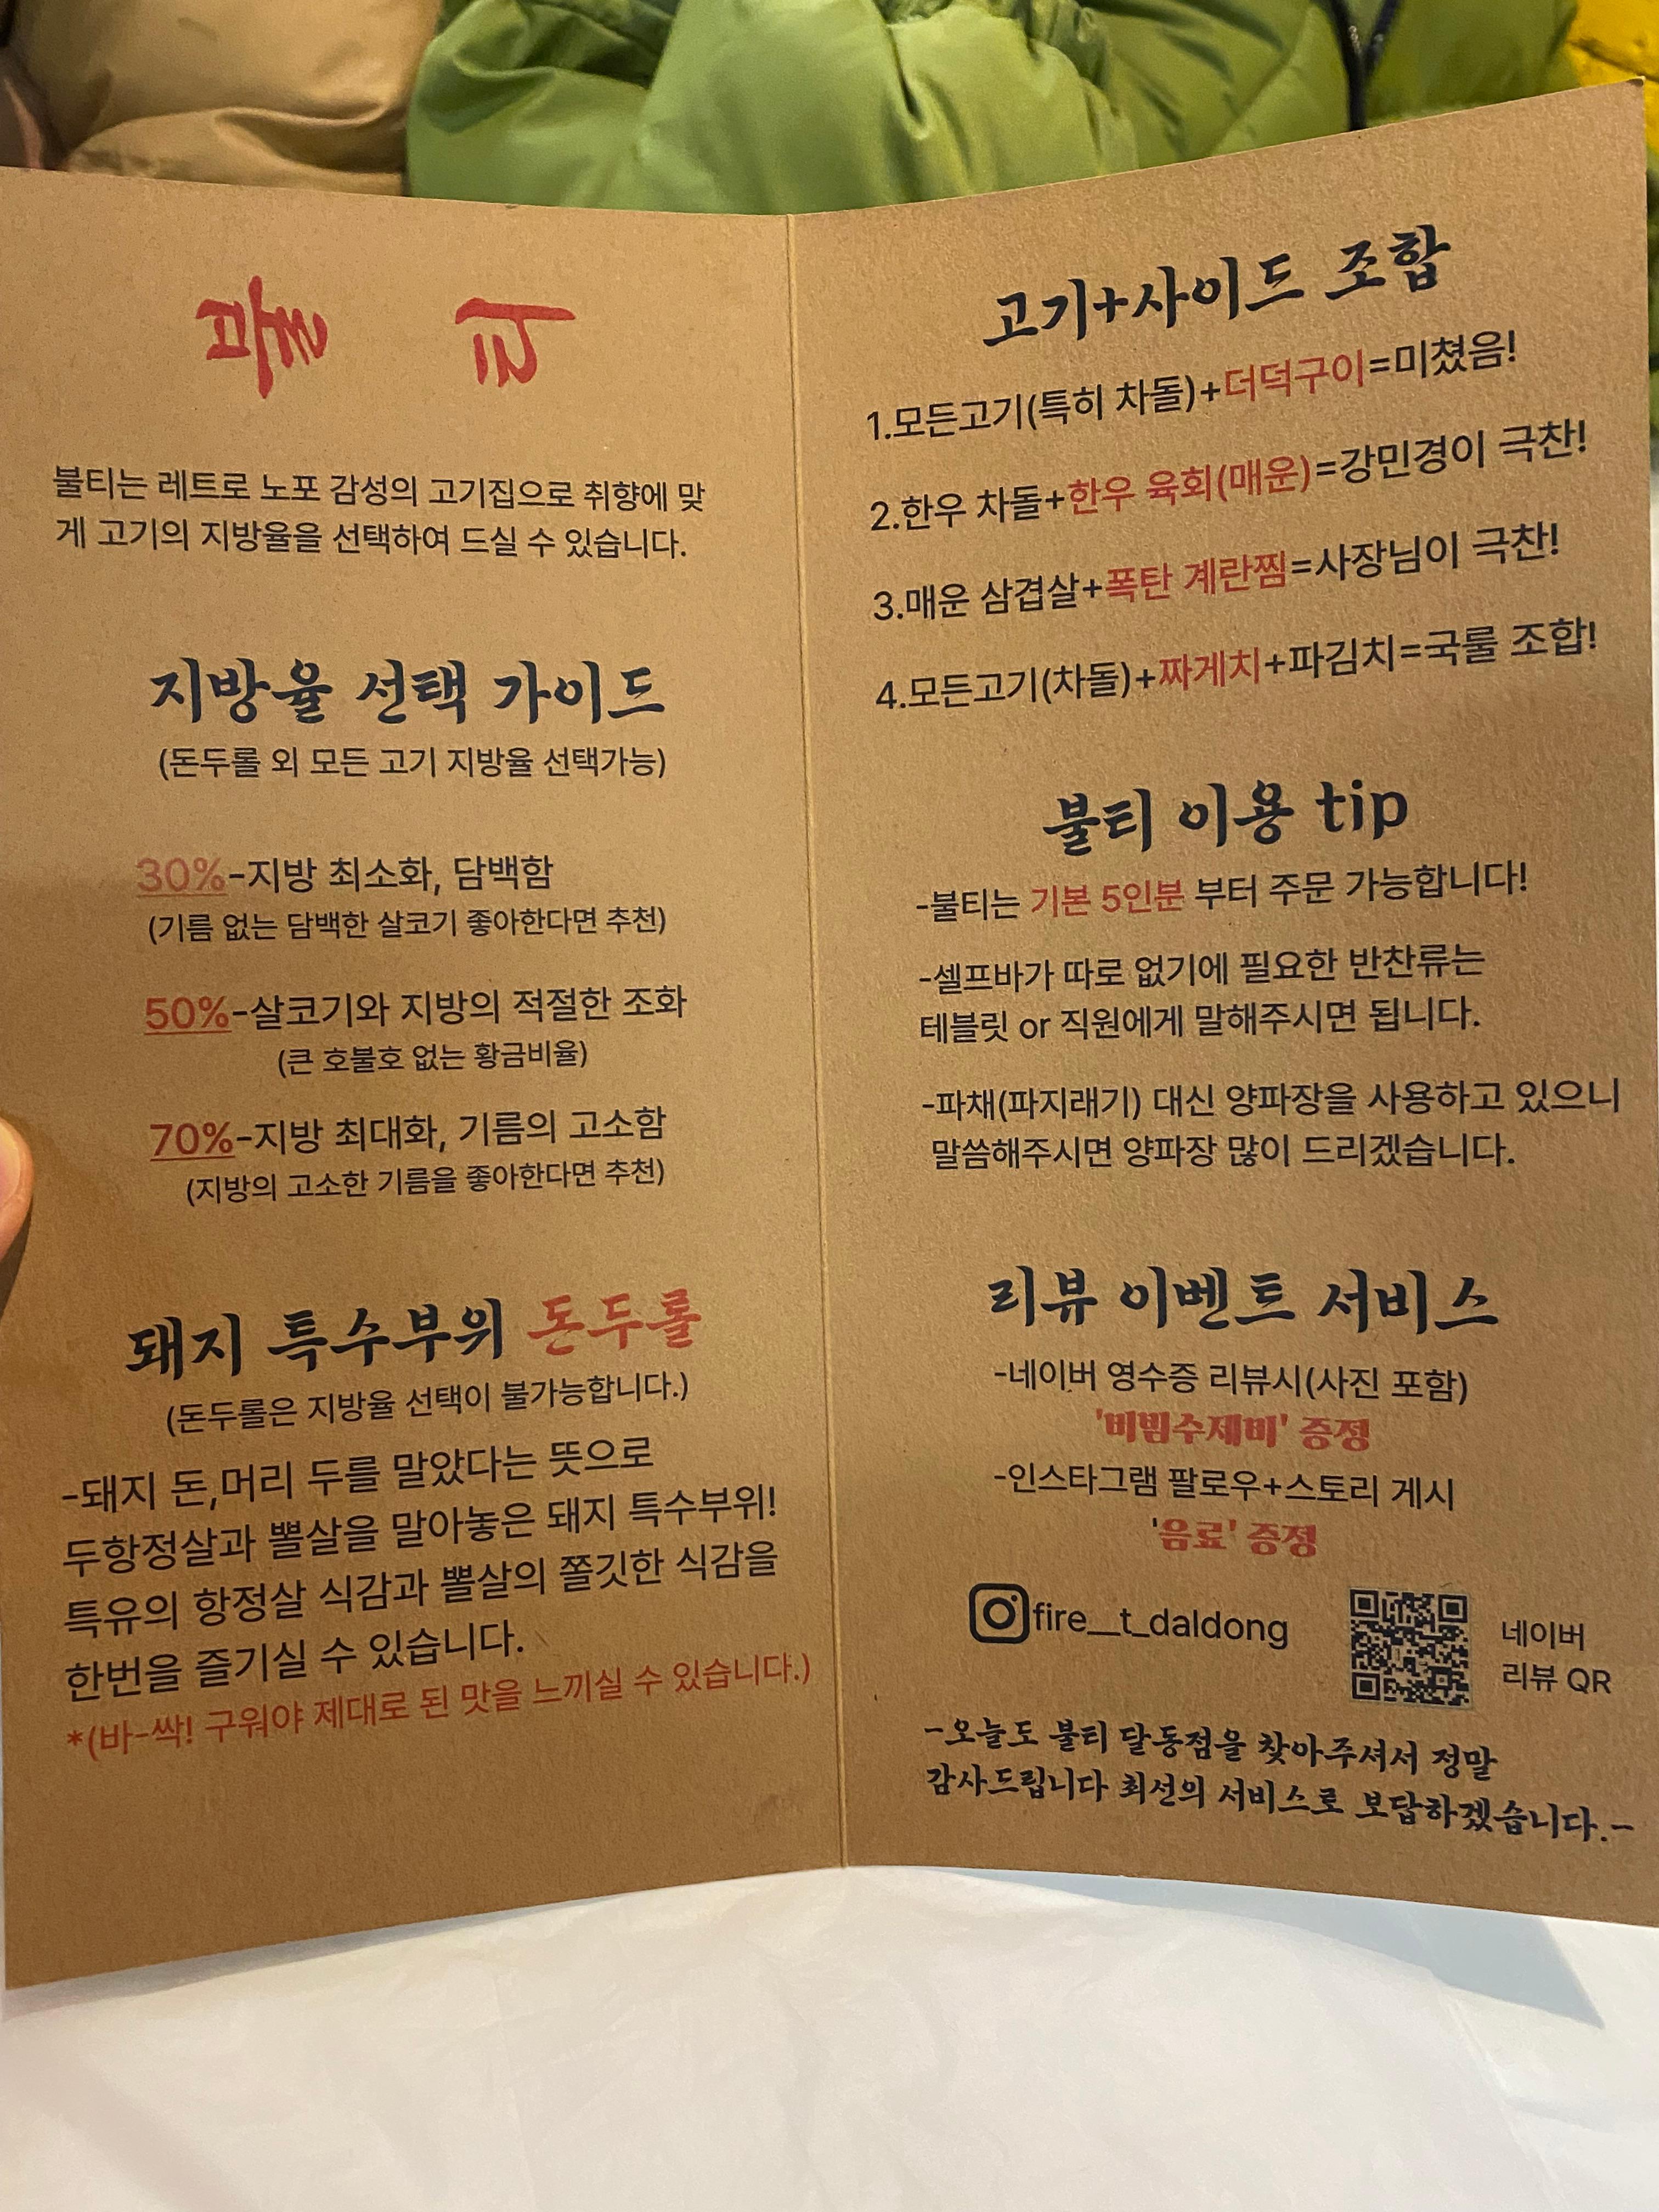 불 티
불티는 레트로 노포 감성의 고기집으로 취향에 맞
게 고기의 지방율을 선택하여 드실 수 있습니다.
지방율 선택 가이드
(돈두롤 외 모든 고기 지방율 선택가능)
30%-지방 최소화, 담백함
(기름 없는 담백한 살코기 좋아한다면 추천)
50%-살코기와 지방의 적절한 조화
(큰 호불호 없는 황금비율)
70%-지방 최대화, 기름의 고소함
(지방의 고소한 기름을 좋아한다면 추천)
돼지 특수부위 돈두롤
(돈두롤은 지방율 선택이 불가능합니다.)
-돼지 돈,머리 두를 말았다는 뜻으로
두항정살과 뽈살을 말아놓은 돼지 특수부위!
특유의 항정살 식감과 뽈살의 쫄깃한 식감을
한번을 즐기실 수 있습니다.
*(바-싹! 구워야 제대로 된 맛을 느끼실 수 있습니다.)
고기+사이드 조합
1.모든고기(특히 차돌)+더덕구이=미쳤음!
2.한우 차돌+한우 육회(매운)=강민경이 극찬!
3.매운 삼겹살+폭탄 계란찜=사장님이 극찬!
4.모든고기(차돌)+짜게치+파김치=국룰 조합!
불티 이용 tip
-불티는 기본 5인분 부터 주문 가능합니다!
-셀프바가 따로 없기에 필요한 반찬류는
테블릿 or 직원에게 말해주시면 됩니다.
-파채(파지래기) 대신 양파장을 사용하고 있으니
말씀해주시면 양파장 많이 드리겠습니다.
리뷰 이벤트 서비스
-네이버 영수증 리뷰시(사진 포함)
'비빔수제비' 증정
-인스타그램 팔로우+스토리 게시
'음료' 증정
fire__t_daldong
네이버
리뷰 QR
-오늘도 불티 달동점을 찾아주셔서 정말
감사드립니다 최선의 서비스로 보답하겠습니다.-